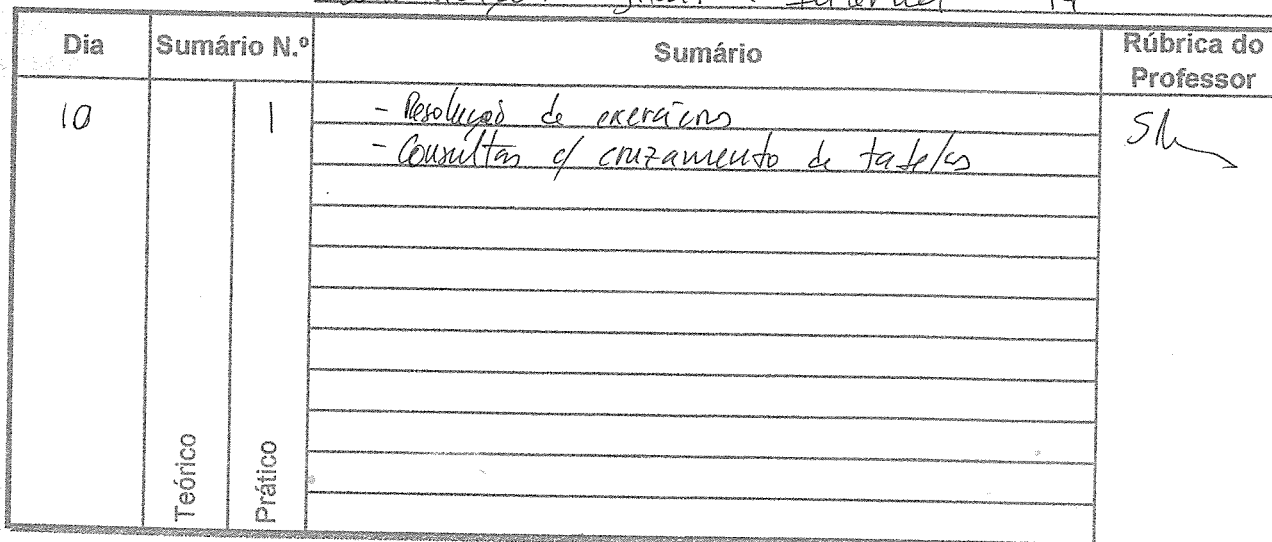 Internet
Dia Sumário N.º Sumário Rúbrica do Professor
10 1 - Resolução de exercícios
- Consultas c/ cruzamento de tabelas
Teórico
Prático